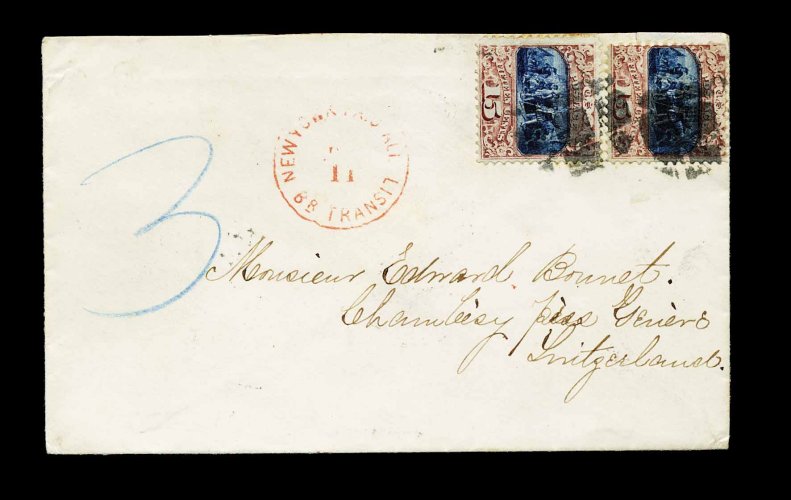 15
15
NEW YORK PAID ALL
11
BR TRANSIT
3
Monsieur Edward Bonnet.
Chambésy près Genève
Switzerland.